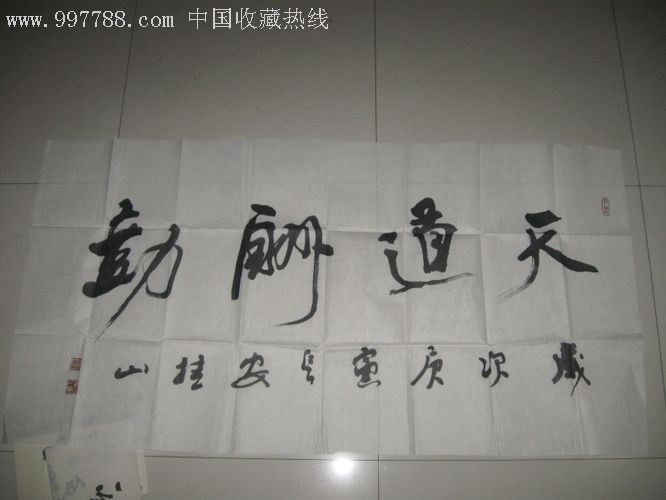 www.997788.com 中国收藏热线
天道酬勤
歲次庚寅長安桂山